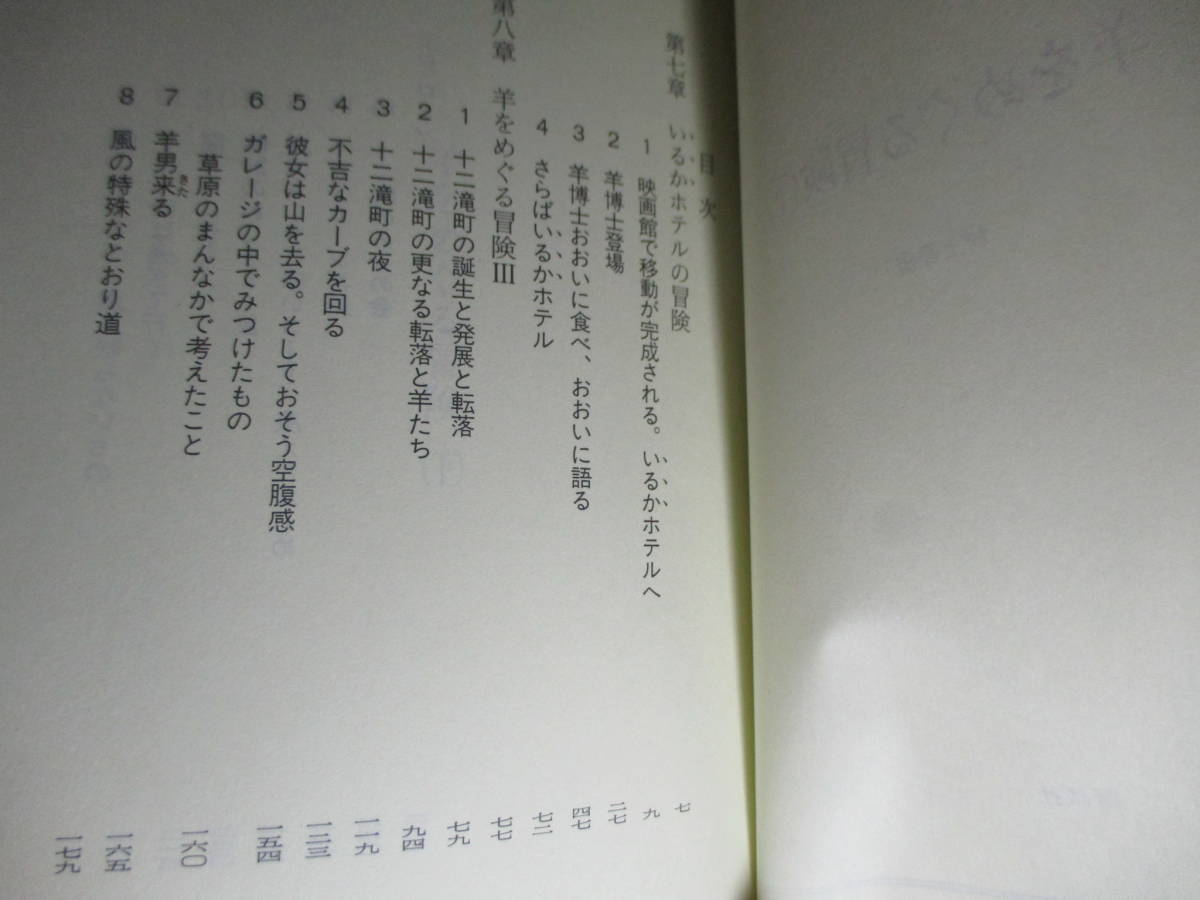 目次
第七章 いるかホテルの冒険 七
1 映画館で移動が完成される。いるかホテルへ 九
2 羊博士登場 二七
3 羊博士おおいに食べ、おおいに語る 四七
4 さらばいるかホテル 七二
第八章 羊をめぐる冒険Ⅲ 七七
1 十二滝町の誕生と発展と転落 七九
2 十二滝町の更なる転落と羊たち 九四
3 十二滝町の夜 一一九
4 不吉なカーブを回る 一二三
5 彼女は山を去る。そしておそう空腹感 一五四
6 ガレージの中でみつけたもの
草原のまんなかで考えたこと 一六〇
7 羊男来る 一六五
きた
8 風の特殊なとおり道 一七九